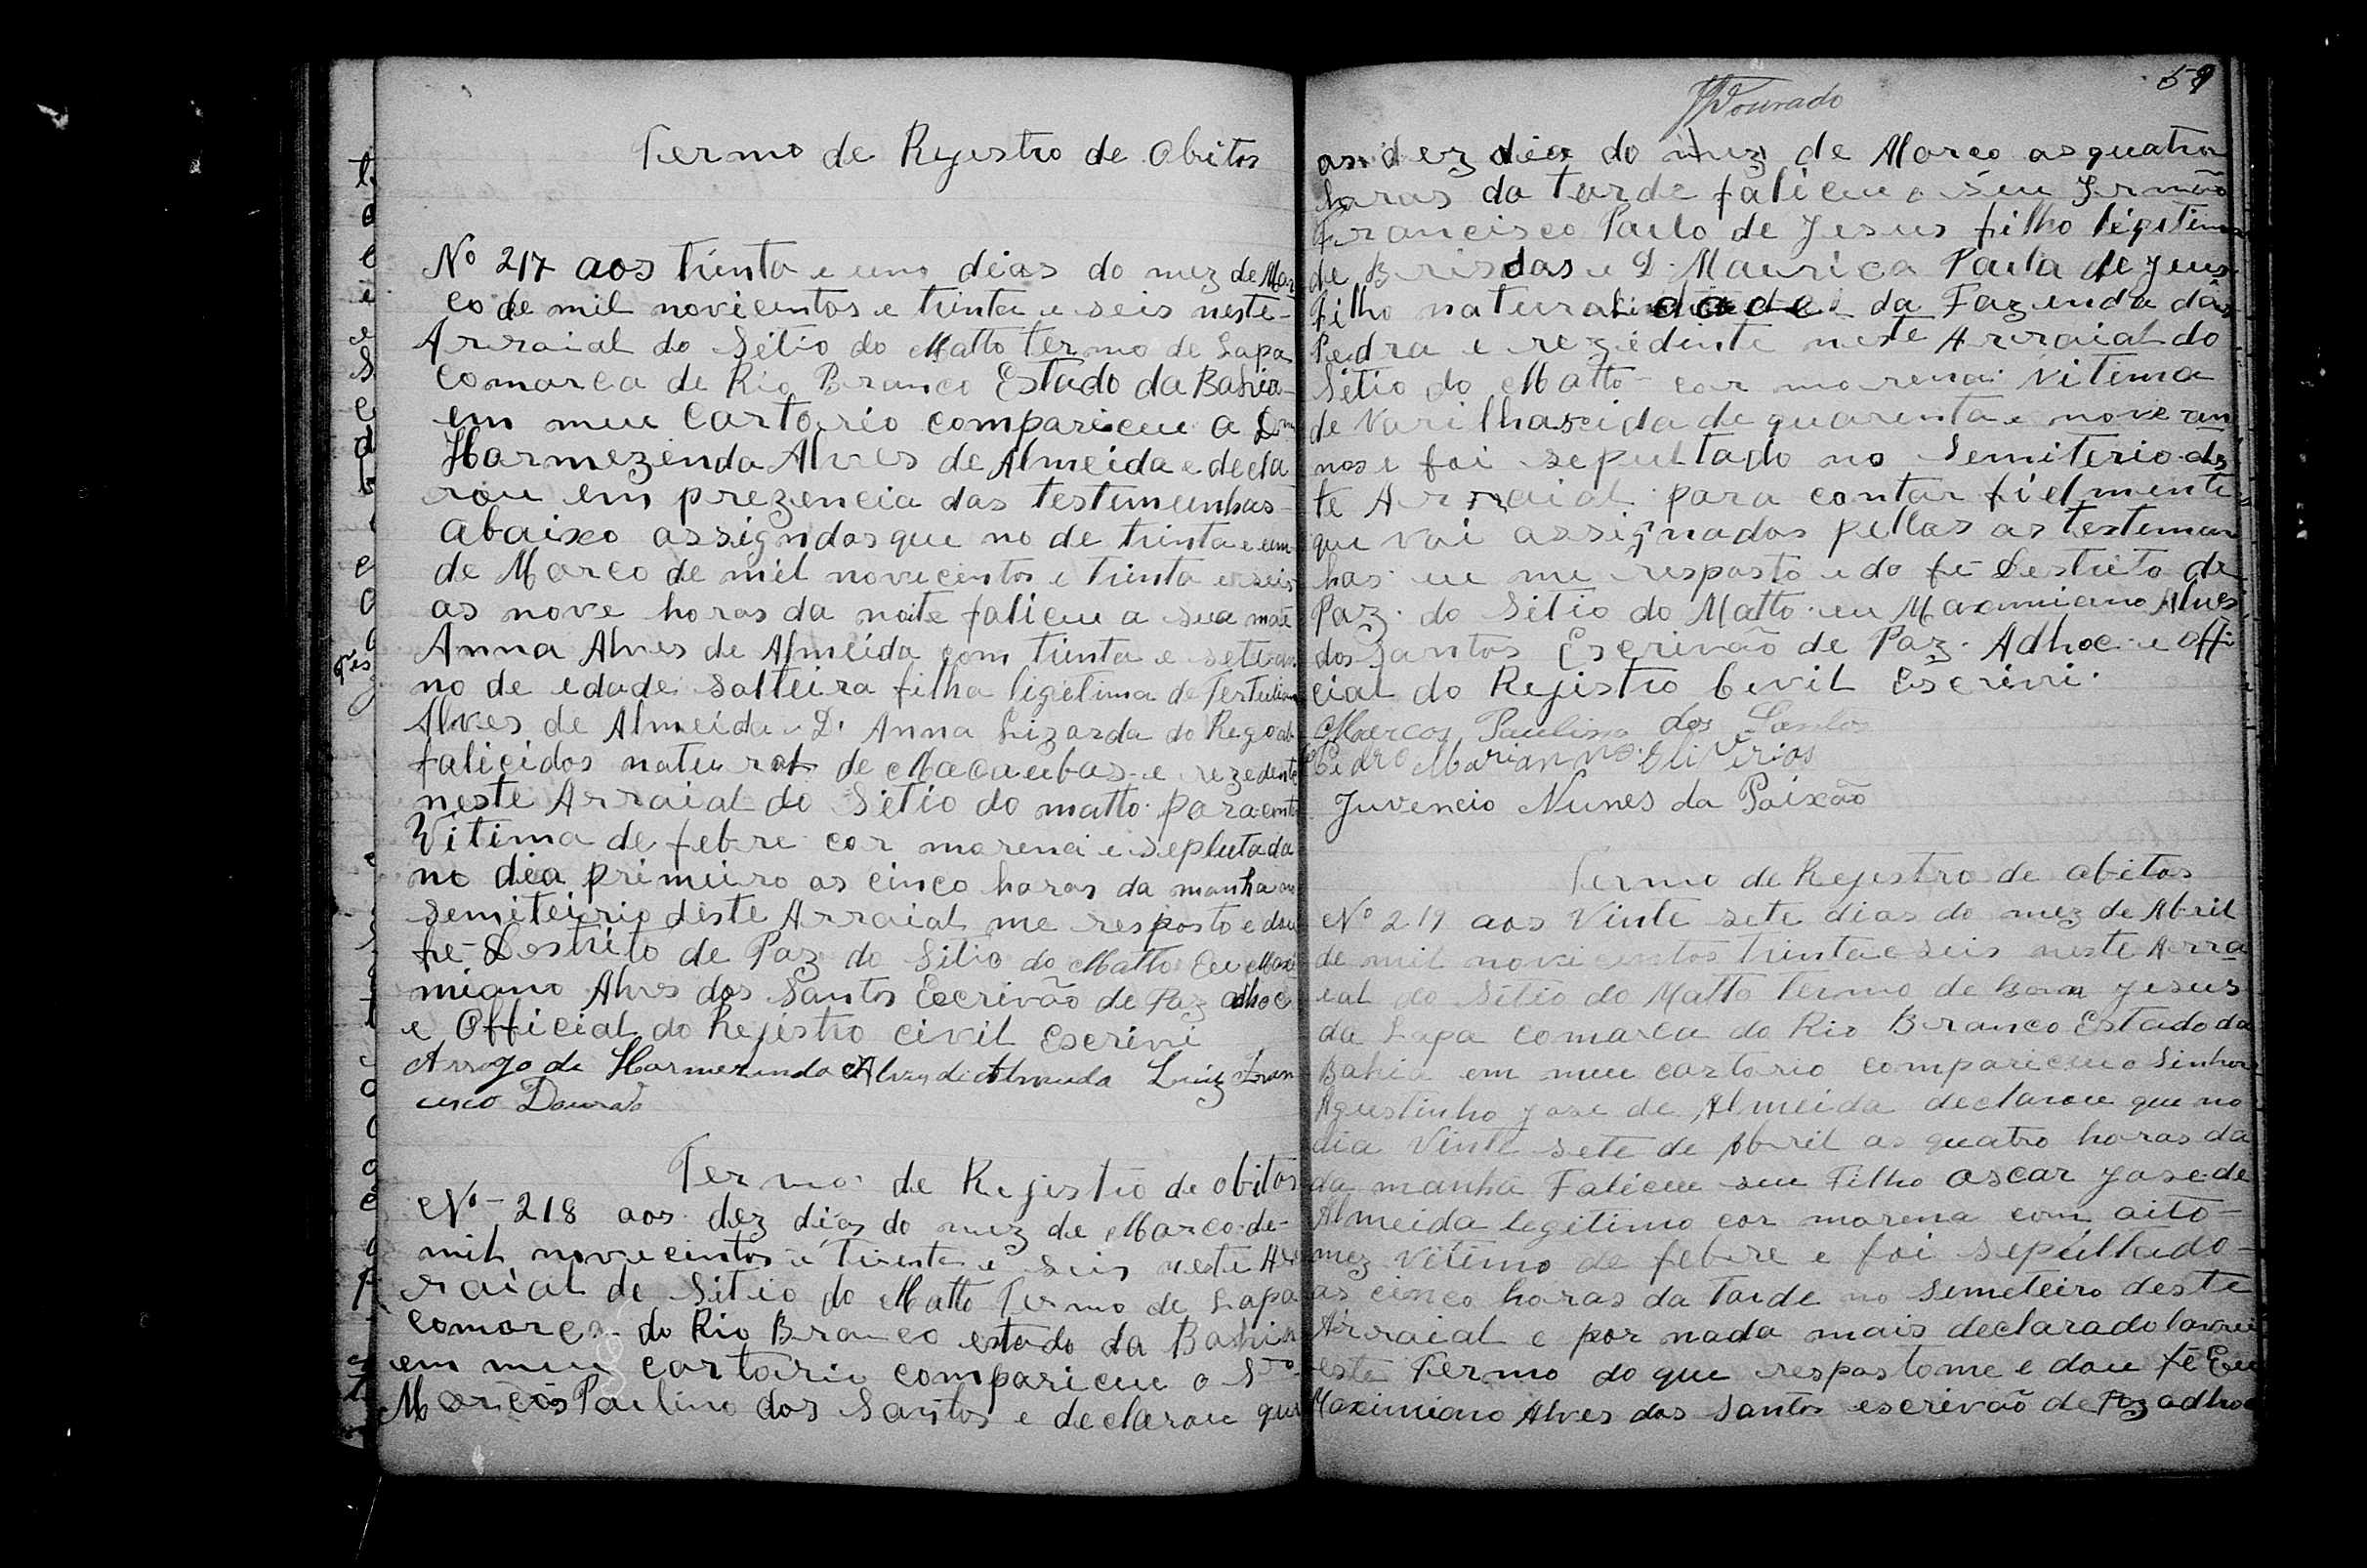 Termo de Rejestro de Obitos
Nº 217 aos trinta e um dias do mez de Mar
co de mil novicentos e trinta e seis neste
Arraial do Sitio do Matto termo de Lapa
comarca de Rio Branco Estado da Bahia
em meu Cartorio compariceu a Dona
Harmezenda Alves de Almeida e decla
rou em prezencia das testemunhas
abaixo assigndos que no de trinta e um
de Marco de mil novecentos e trinta e seis
as nove horas da noite faliceu a sua mãe
Anna Alves de Almeida com trinta e sete an
no de edade Salteira filha ligitima de Tertulian
Alves de Almeida e D. Anna Lizarda do Rego
falicidos natural de Macaubas e rezedente
neste Arraial do Sitio do matto
Vitima de febre cor morena e seplutada
no dia primeiro as cinco horas da manha
semiteirio deste Arraial me resposto e dou
fe Destrito de Paz do Sitio do Matto Eu Maxi
miano Alves dos Santos Escrivão de Paz adhoc
e Official do Rejistro civil Escrivi
Arrogo de Harmezinda Alves de Almeida Luiz Fran
cisco Dourado
Termo de Rejistro de obitos
Nº 218 aos dez dias do mez de Marco de
mil novecentos e trinta e seis neste Ar
raial de Sitio do Matto Termo de Lapa
comarca do Rio Branco estado da Bahia
em meu cartorio compariceu o Snro
Marcos Paulino dos Santos e declarou que
59
Dourado
as dez dias do mez de Marco as quatro
horas da tarde faliceu o seu Jrmão
Francisco Paulo de Jesus filho ligitimo
de Brisdas e D. Maurica Paula de Jesus
filho natural da Fazenda das
Pedra e rezidente neste Arraial do
Sitio do Matto cor morena Vitima
de Varilhas eidade quarenta e nove an
nos e foi sepultado no Semiterio des
te Arraial para contar fielmente
que vai assignados pellas as testemun
has eu me resposto e do fe Destrito de
Paz do Sitio do Matto eu Maximiano Alves
dos Santos Escrivão de Paz Adhoc e offi
cial do Rejistro Civil Escrivi.
Marcos Paulino dos Santos
Pedro Marianno Oliverias
Juvencio Nunes da Paixão
Termo de Rejestro de obitos
Nº 219 aos Vinte sete dias do mez de Abril
de mil novicentos trinta e seis neste Arra
ial do Sitio do Matto termo de Bom Jesus
da Lapa comarca do Rio Branco Estado da
Bahia em meu cartorio compariceu o Sinhor
Agustinho Jose de Almeida declarou que no
dia Vinte sete de Abril as quatro horas da
da manhã Faliceu seu Filho Oscar Jose de
Almeida legitimo cor morena com oito
mez Vitimo de febre e foi sepultado
as cinco horas da tarde no Semeteiro deste
Arraial e por nada mais declarado lavrei
este Termo do que respostome e dou fé Eu
Maximiano Alves dos Santos escrivão de Paz adhoc